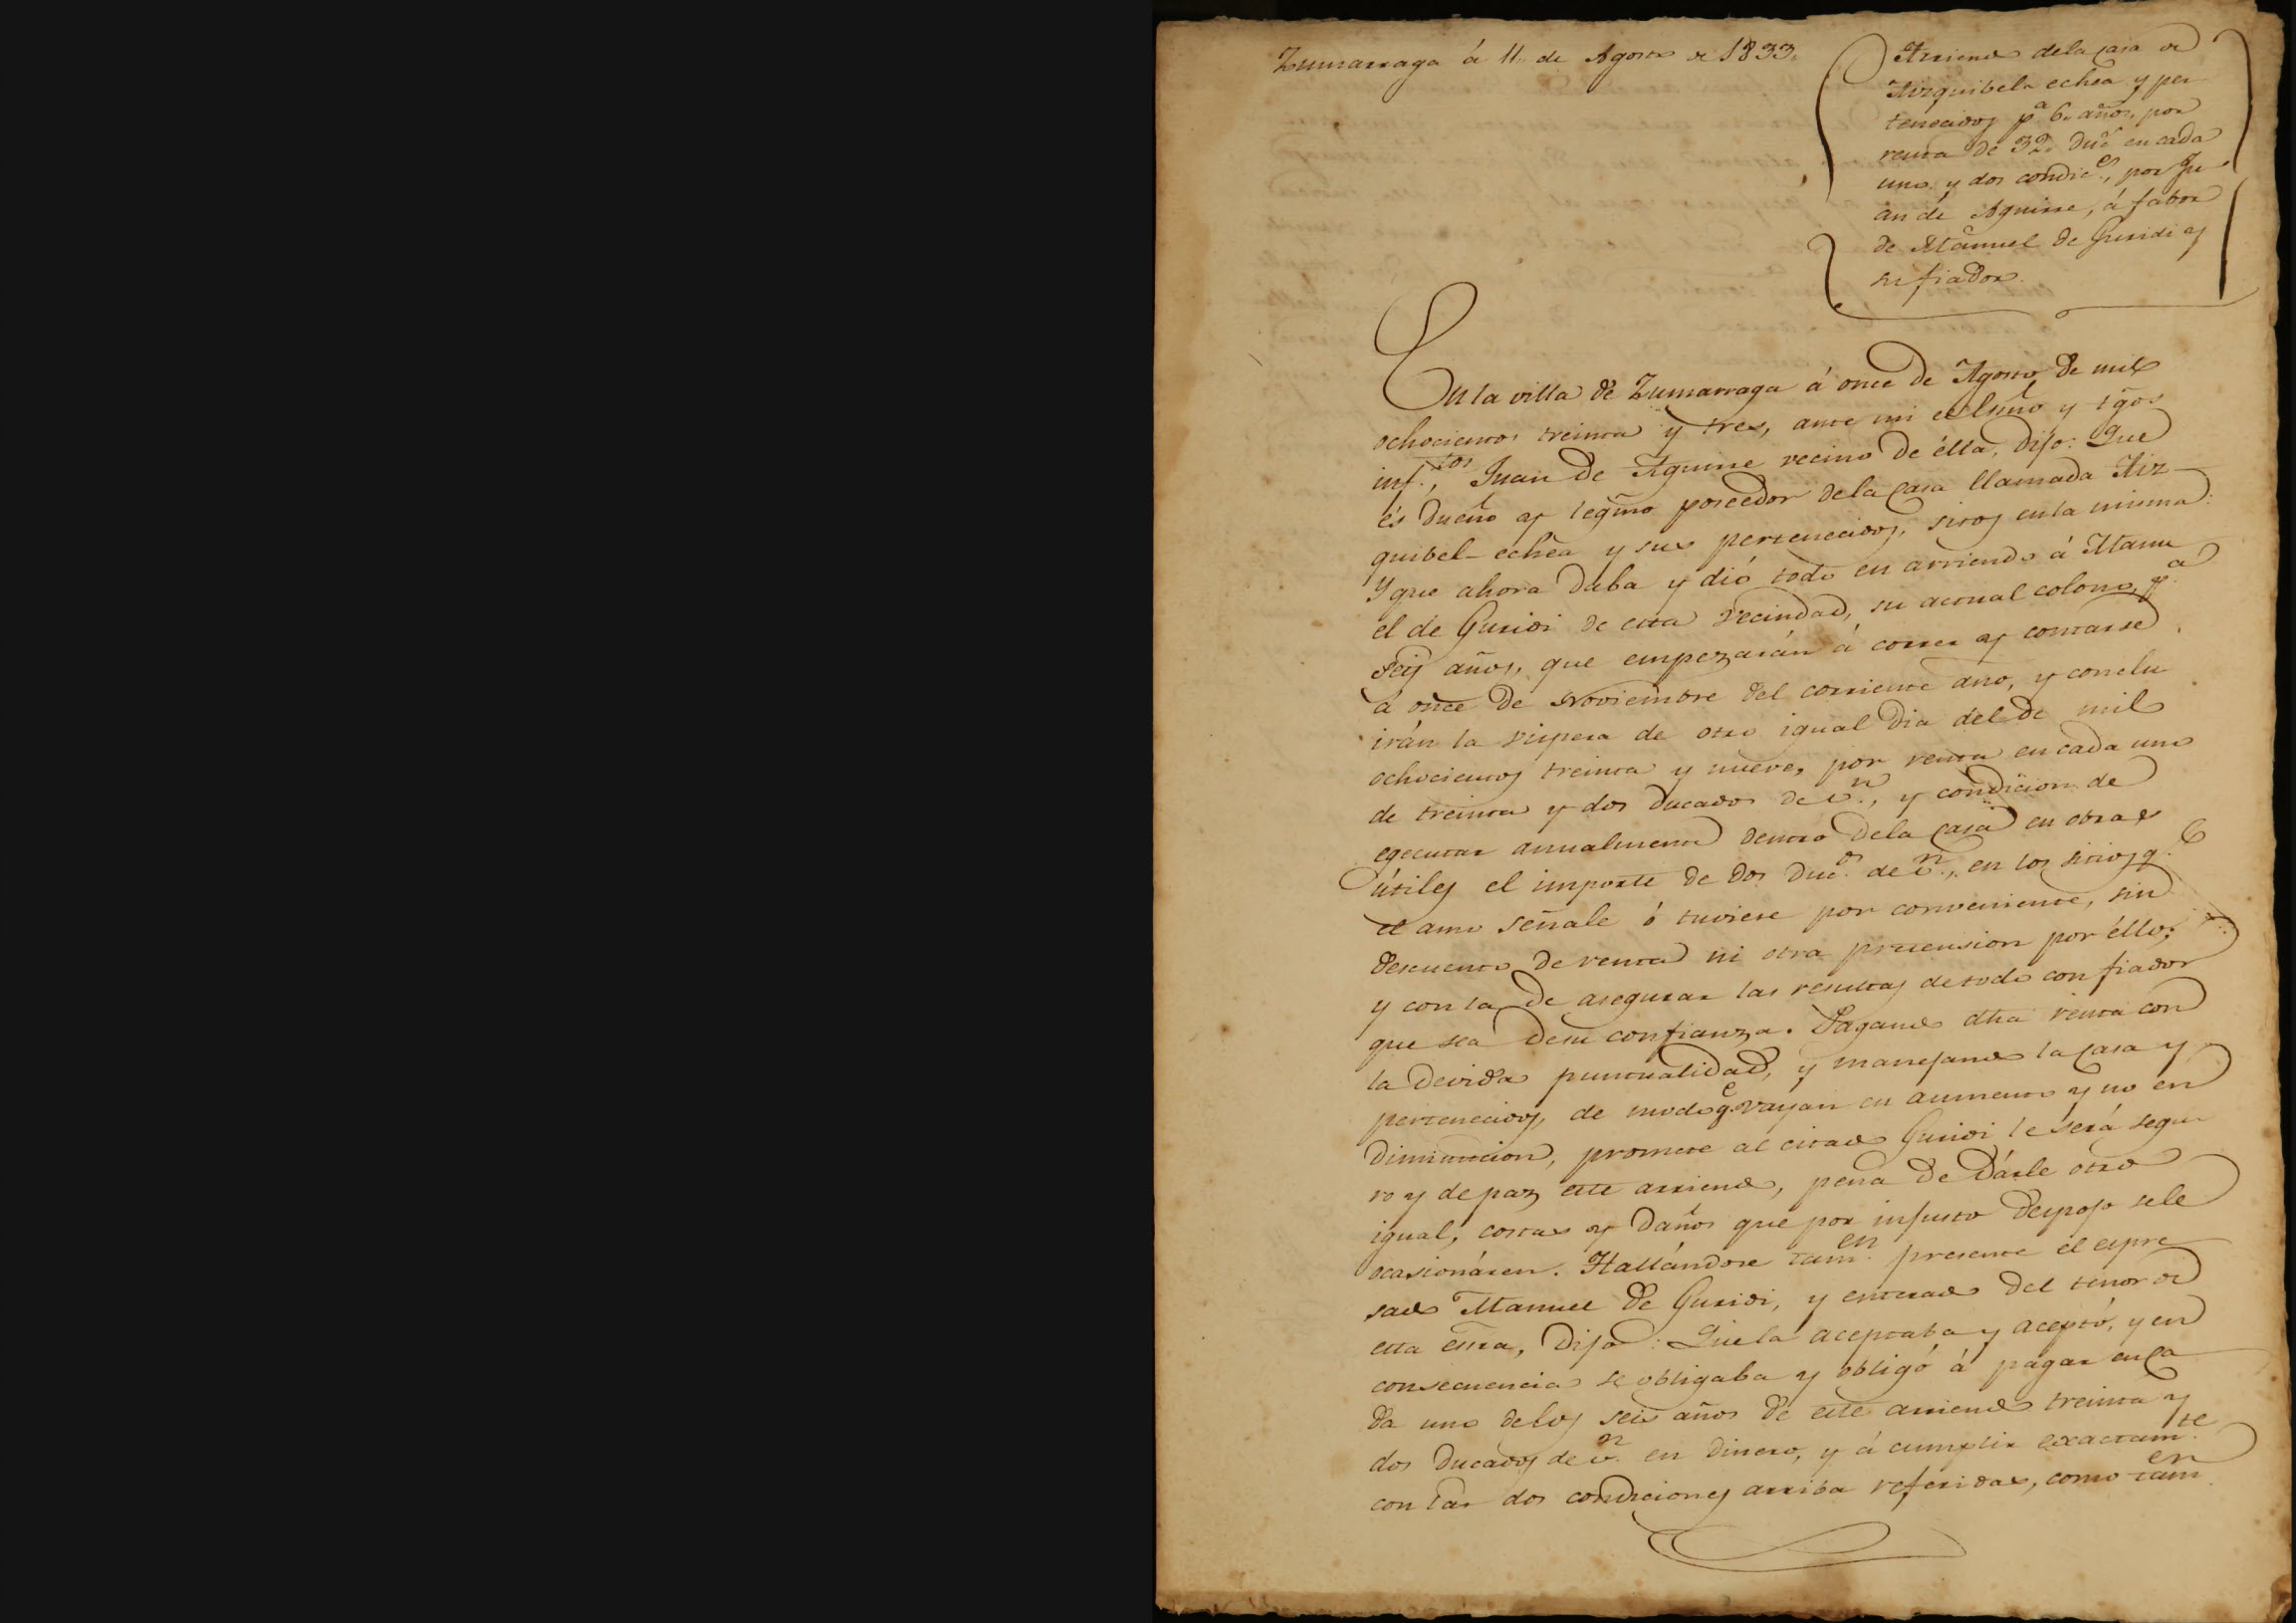 Zumarraga á 11,, de Agosto de 1833.
Arriendo dela casa de
Aizquibel echea y per
tenecidos p.ª 6,, años, por
renta de 32,, duc.s en cada
uno y dos condic.es, por Ju
an de Aguirre, á fabor
de Manuel de Guridi y
su fiador.
En la villa de Zumarraga á once de Agosto de mil
ochocientos treinta y tres, ante mi el Esño y tgos
inf.tos, Juan de Aguirre vecino de élla, dijo: Que
és dueño y legmo poseedor dela casa llamada Aiz-
quibel-echea y sus pertenecidos, sitos enla misma:
Y que ahora daba y dió todo en arriendo á Manu
el de Guridi de esta vecindad, su actual colono, p.ª
seis años, que empezarán á correr y contarse
á once de Noviembre del corriente año, y conclu
irán la vispera de otro igual dia del de mil
ochocientos treinta y nueve, por renta en cada uno
de treinta y dos ducados de v.n, y condicion de
egecutar anualmente dentro dela casa en obras
útiles el importe de dos duc.os de v.n, en los sitios q.e
el amo señale ó tuviere por conveniente, sin
descuento de renta ni otra pretension por éllo;
y con la de asegurar las resultas de todo con fiador
que sea desu confianza. Pagando dha renta con
la devida puntualidad, y manejando la casa y
pertenecidos, de modo q.e vayan en aumento y no en
diminucion, promete al citado Guridi le será segu
ro y de paz este arriendo, pena de dárle otro
igual, costas y daños que por injusto despojo sele
ocasionáren. Hallándose tam.en presente el espre
sado Manuel de Guridi, y enterado del tenor de
esta esĩra, dijo: Que la aceptaba y aceptó, y en
consecuencia se obligaba y obligó á pagar en ca
da uno delos seis años de este arriendo treinta y
dos ducados de v.n en dinero, y á cumplir exactam.te
con las dos condiciones arriba referidas, como tam.en